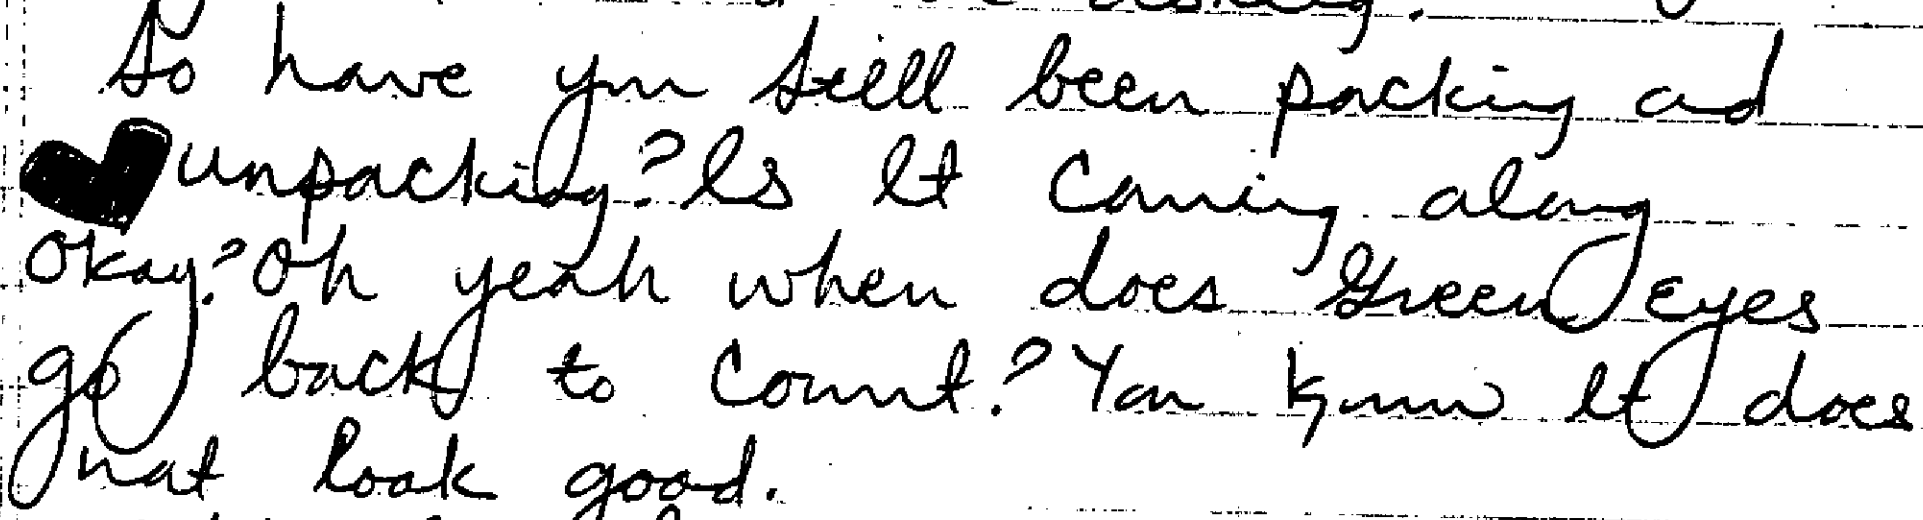 So have you still been packing ad
unpacking? Is It coming along
okay? Oh yeah when does Green Eyes
go back to Count? You know It does
not look good.